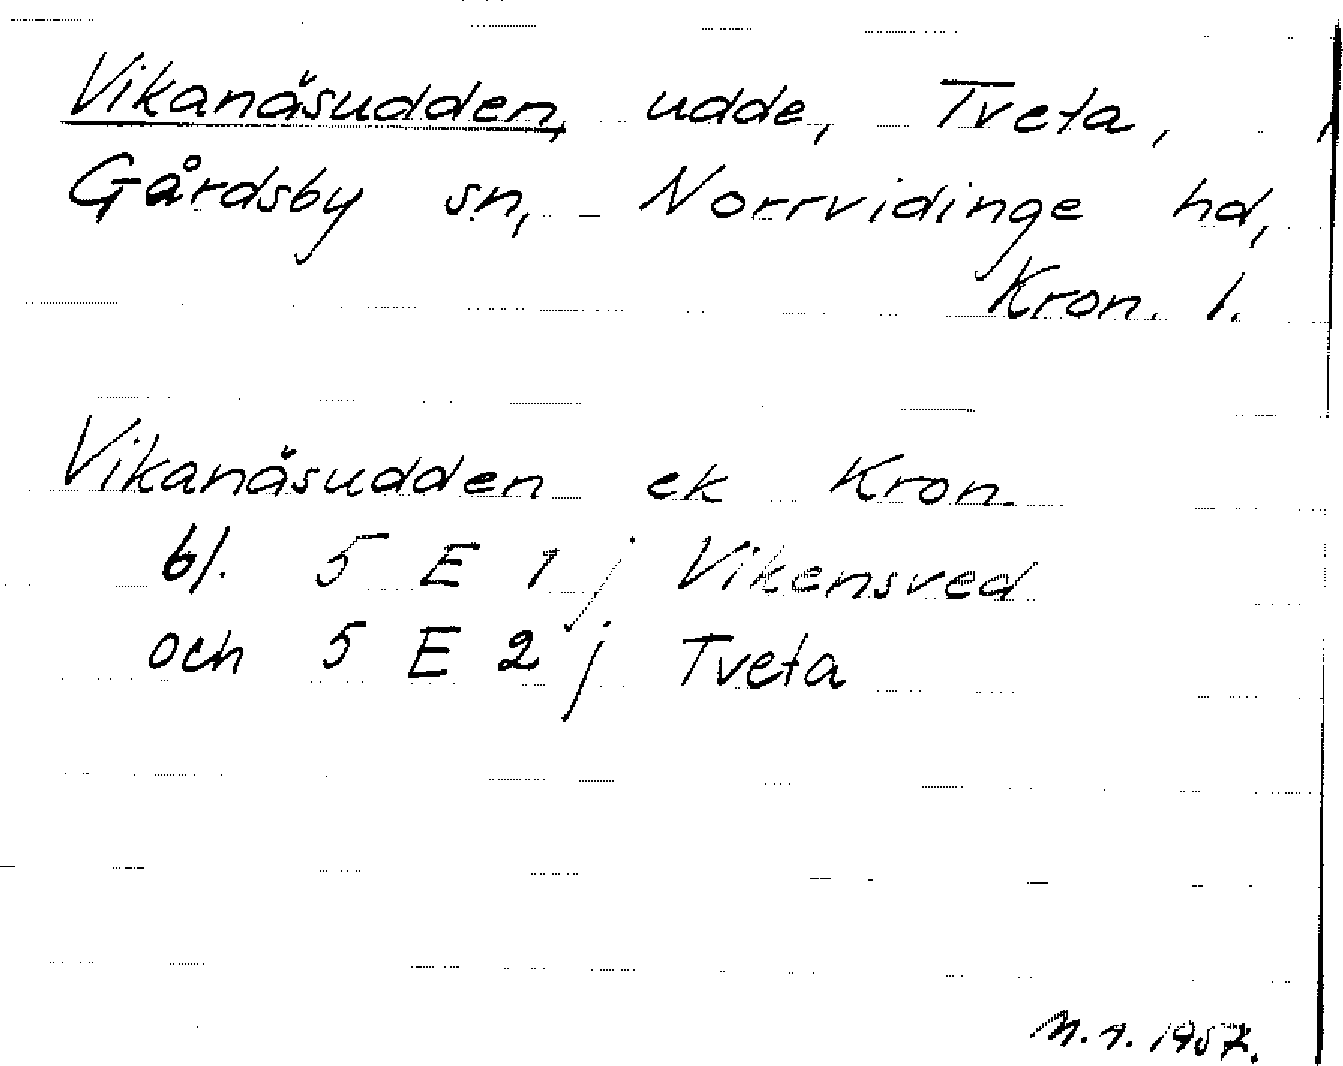 Vikanäsudden, udde, Tveta,
Gårdsby sn, Norrvidinge hd,
Kron. l.
Vikanäsudden ek Kron.
bl. 5 E 1 j Vikensved
och 5 E 2 j Tveta
1957.